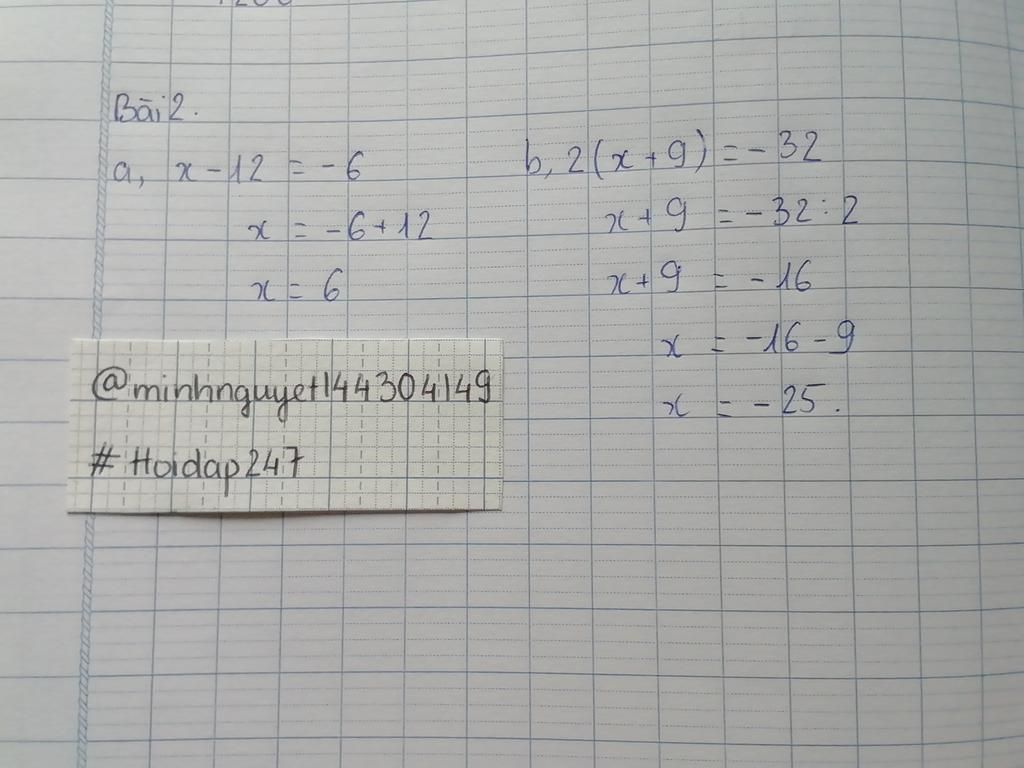 Bài 2.
a, x - 12 = -6
x = -6 + 12
x = 6
b, 2(x + 9) = -32
x + 9 = -32 : 2
x + 9 = -16
x = -16 - 9
x = -25.
@minhnguyet144304149
# Hoidap247